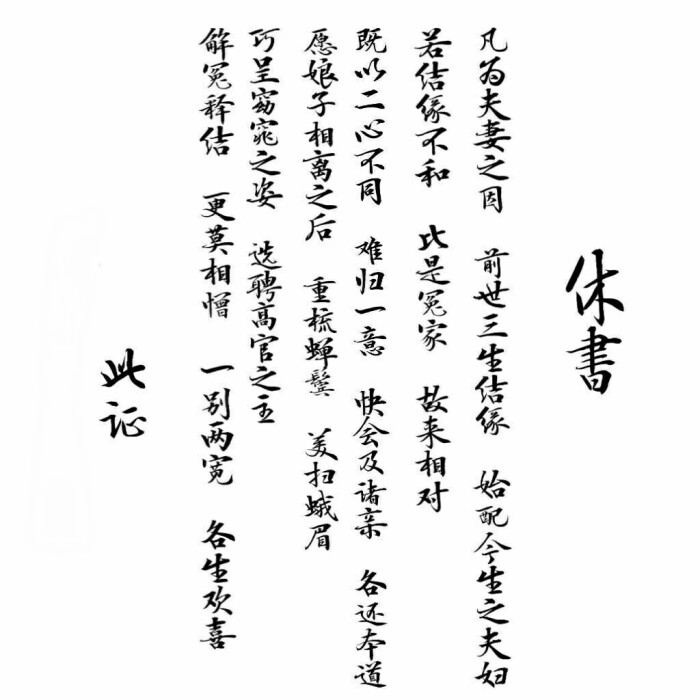 休書
凡为夫妻之因 前世三生结缘 始配今生之夫妇
若结缘不和 比是冤家 故来相对
既以二心不同 难归一意 快会及诸亲 各还本道
愿娘子相离之后 重梳蝉鬓 美扫蛾眉
巧呈窈窕之姿 选聘高官之主
解冤释结 更莫相憎 一别两宽 各生欢喜
此证